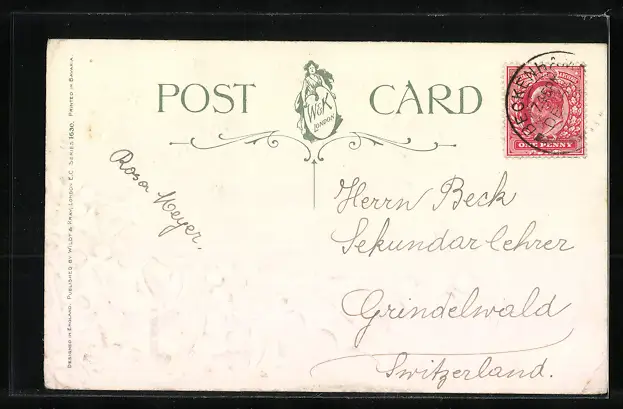 POST CARD
W&K
LONDON
ONE PENNY
Rosa Meyer.
Herrn Beck
Sekundarlehrer
Grindelwald
Switzerland.
DESIGNED IN ENGLAND. PUBLISHED BY WILDT & KRAY, LONDON. E.C. SERIES 1630. PRINTED IN BAVARIA.